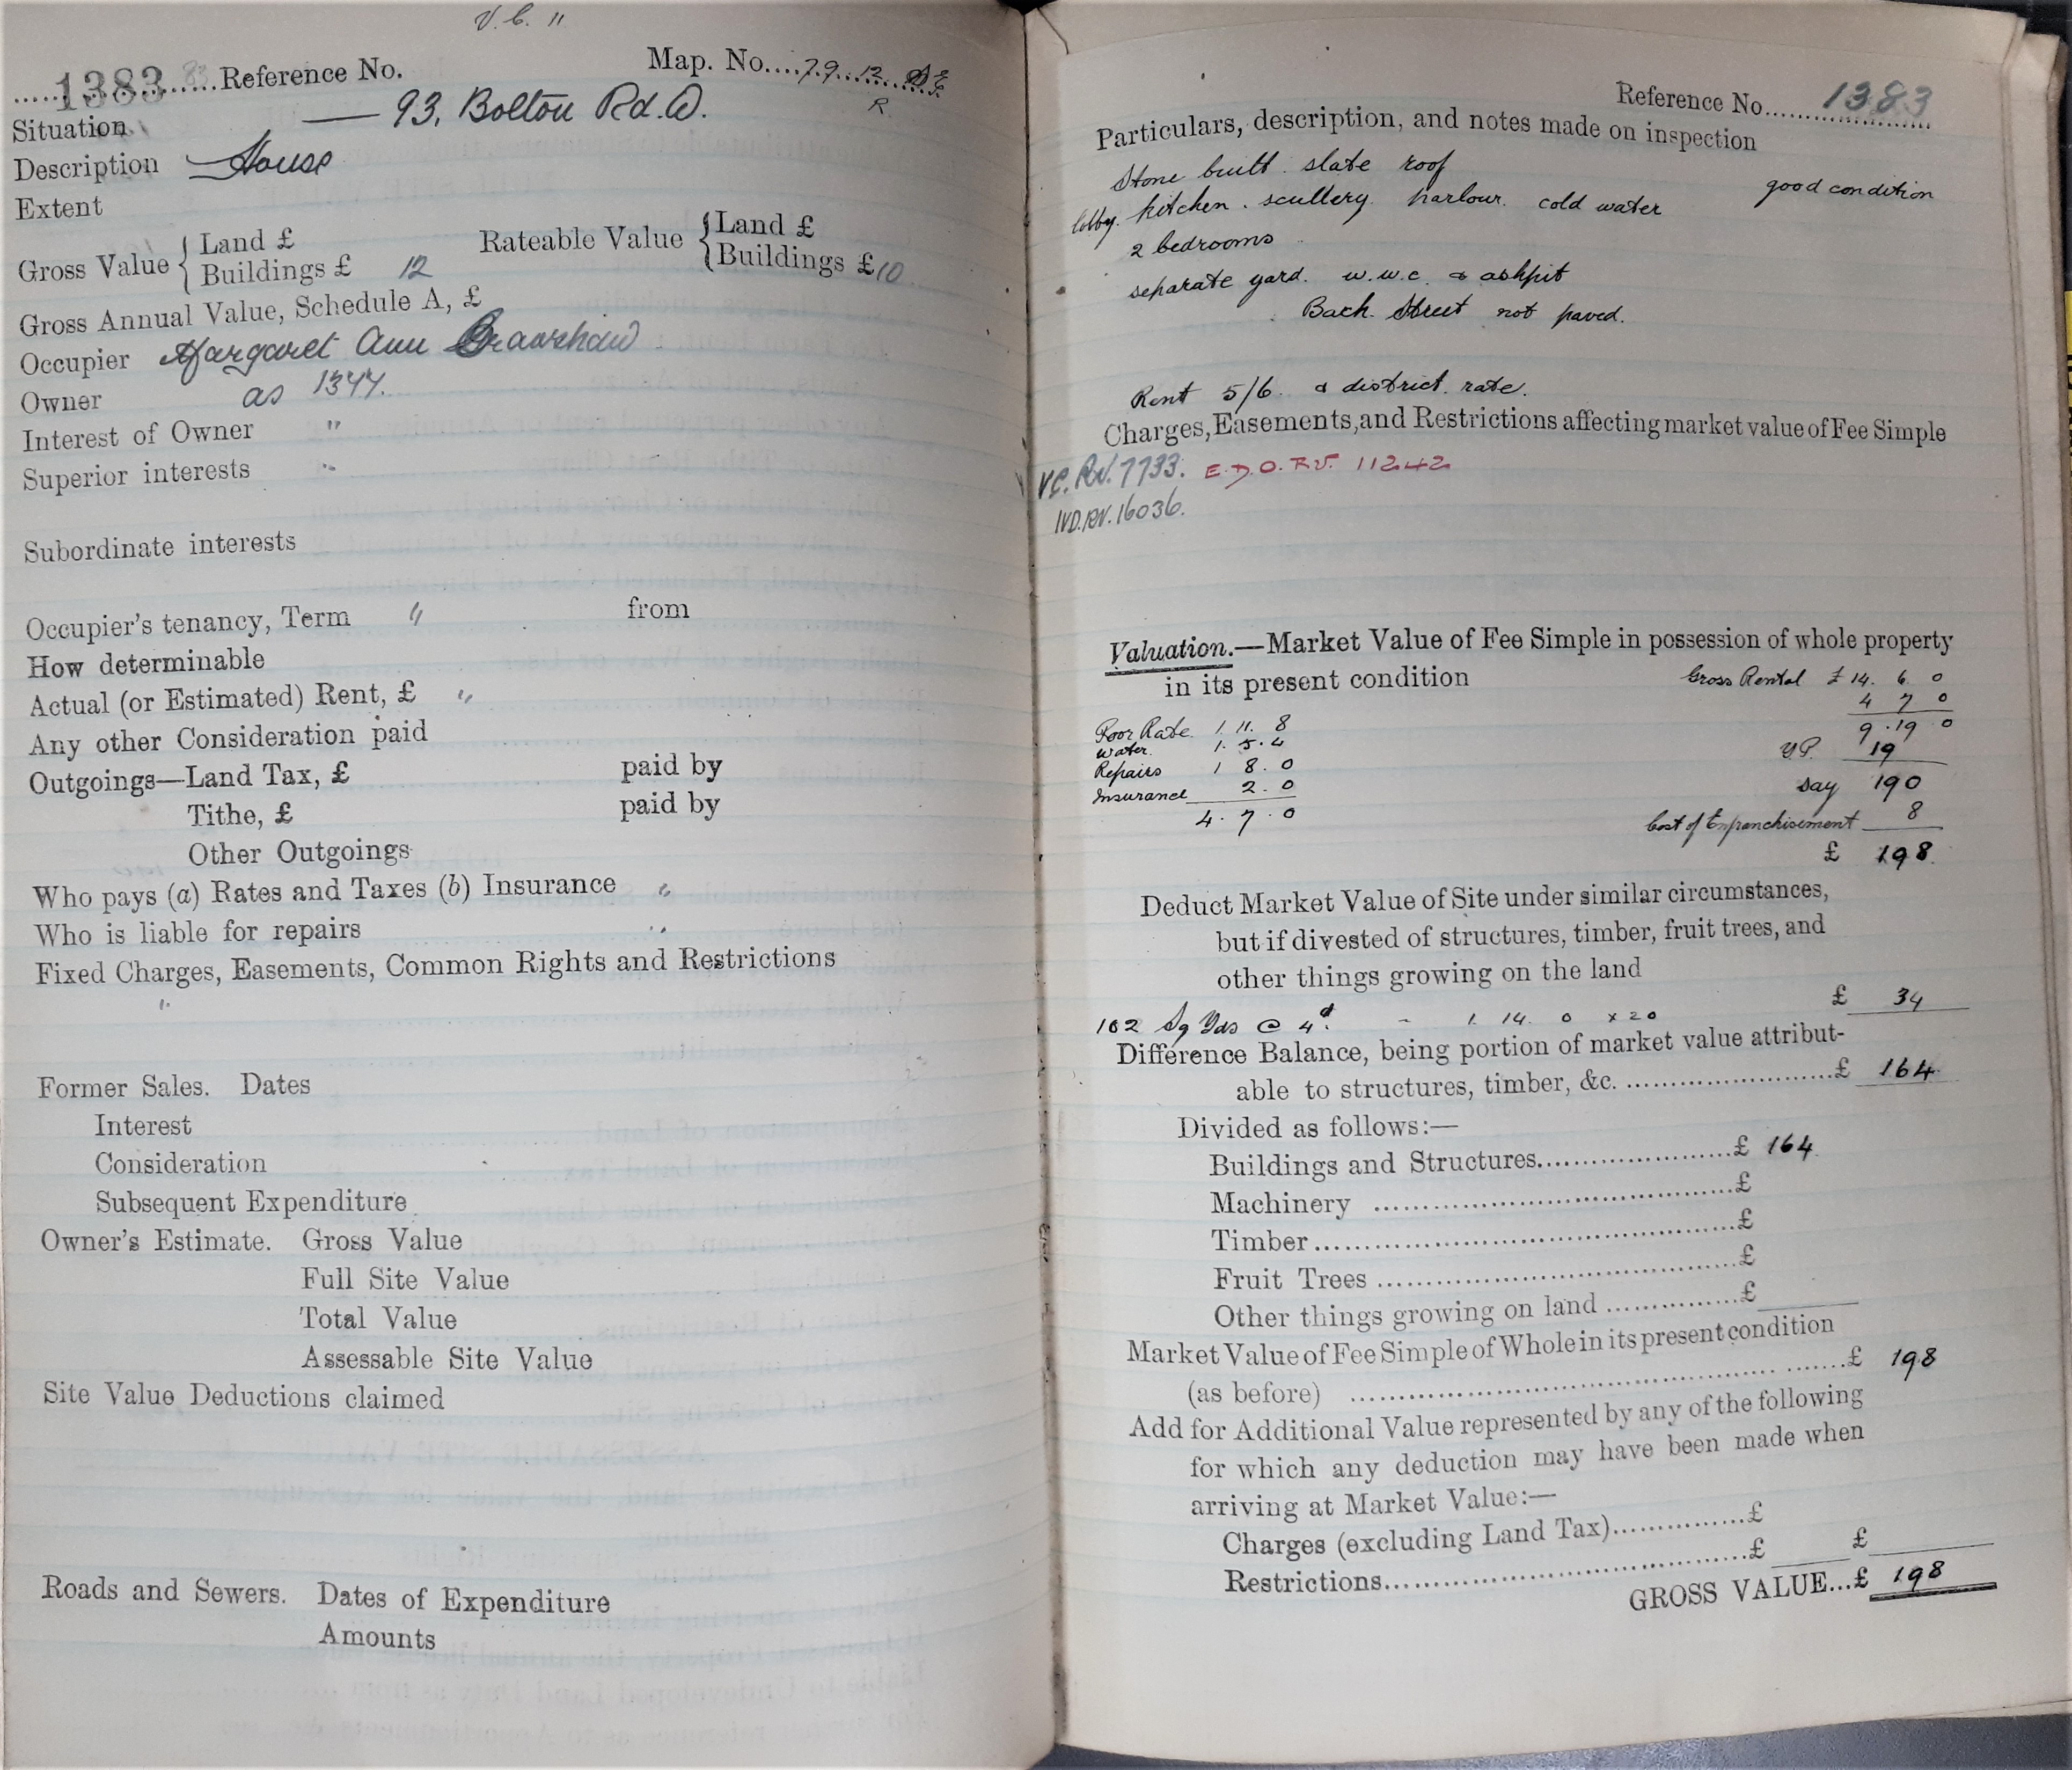 V.C. "
1383 Reference No. Map. No. 79. 12.
R
Situation — 93, Bolton Rd. W.
Description House
Extent
Gross Value { Land £ Rateable Value { Land £
Buildings £ 12 Buildings £ 10
Gross Annual Value, Schedule A, £
Occupier Margaret Ann Crawshaw
Owner as 1347.
Interest of Owner "
Superior interests "
Subordinate interests
Occupier's tenancy, Term " from
How determinable
Actual (or Estimated) Rent, £ "
Any other Consideration paid
Outgoings—Land Tax, £ paid by
Tithe, £ paid by
Other Outgoings
Who pays (a) Rates and Taxes (b) Insurance "
Who is liable for repairs "
Fixed Charges, Easements, Common Rights and Restrictions
"
Former Sales. Dates
Interest
Consideration
Subsequent Expenditure
Owner's Estimate. Gross Value
Full Site Value
Total Value
Assessable Site Value
Site Value Deductions claimed
Roads and Sewers. Dates of Expenditure
Amounts
Reference No. 1383
Particulars, description, and notes made on inspection
Stone built. slate roof good condition
lobby. kitchen. scullery. parlour. cold water
2 bedrooms
separate yard. w.w.c. & ashpit
Back Street not paved.
Rent 5/6. & district rate.
Charges, Easements, and Restrictions affecting market value of Fee Simple
V.C. RV. 7733. E.D.O. R.V. 11242
IVD.RV.16036.
Valuation.—Market Value of Fee Simple in possession of whole property
in its present condition Gross Rental £ 14. 6. 0
4 7 0
Poor Rate 1. 11. 8 9.19 0
Water. 1. 5. 4 Y.P. 19
Repairs 1 8. 0
Insurance 2. 0 say 190
4. 7. 0 Cost of Enfranchisement 8
£ 198.
Deduct Market Value of Site under similar circumstances,
but if divested of structures, timber, fruit trees, and
other things growing on the land £ 34
102 Sq Yds @ 4d. - 1. 14. 0 x 20
Difference Balance, being portion of market value attribut-
able to structures, timber, &c. £ 164
Divided as follows:—
Buildings and Structures £ 164
Machinery £
Timber £
Fruit Trees £
Other things growing on land £
Market Value of Fee Simple of Whole in its present condition
(as before) £ 198
Add for Additional Value represented by any of the following
for which any deduction may have been made when
arriving at Market Value:—
Charges (excluding Land Tax) £
Restrictions £ £
GROSS VALUE...£ 198